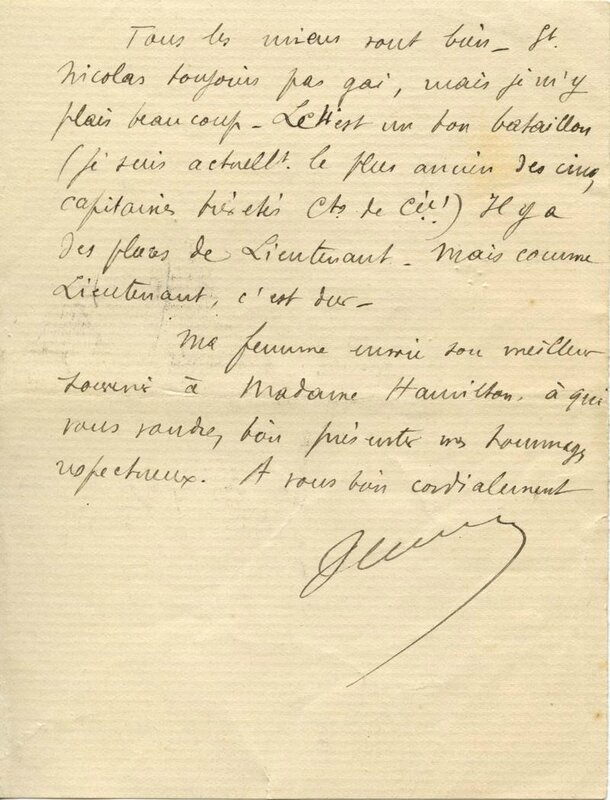 Tous les miens vont bien – St.
Nicolas toujours pas gai, mais je m'y
plais beaucoup – Le 4 est un bon bataillon
(je suis actuellt. le plus ancien des cinq
capitaines brevetés Cts. de Cie!) Il y a
des places de Lieutenant – Mais comme
Lieutenant, c'est dur –
Ma femme envoie son meilleur
souvenir à Madame Hamilton, à qui
vous voudrez bien présenter mes hommages
respectueux. A vous bien cordialement